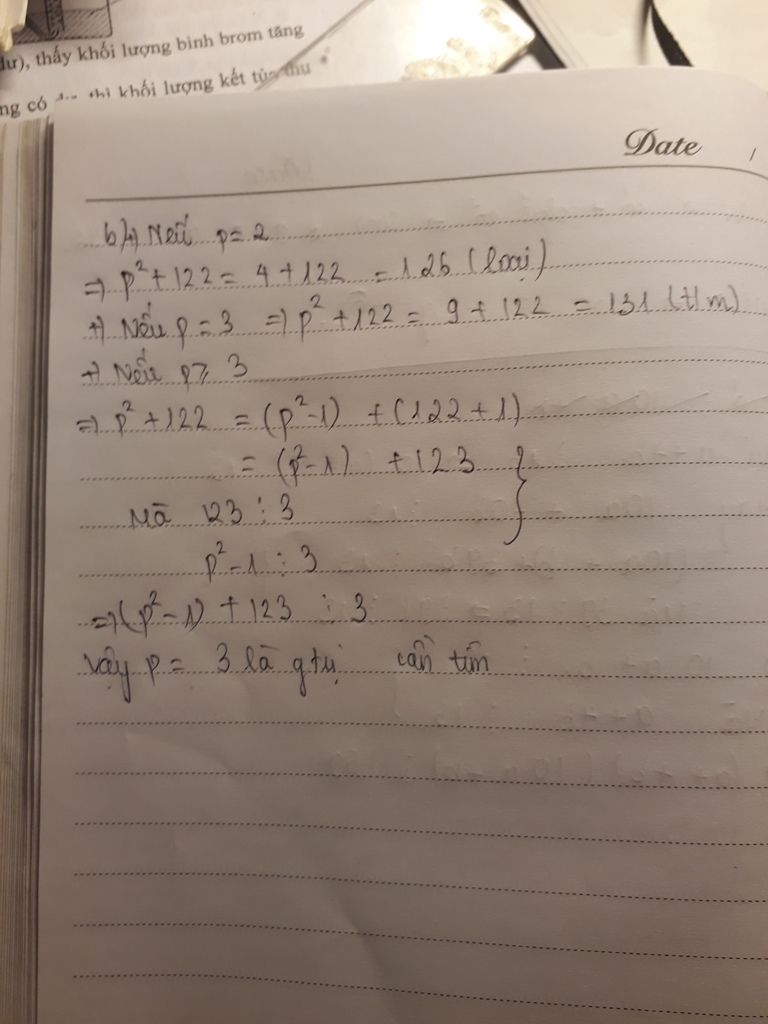 lư), thấy khối lượng bình brom tăng
ng có dư thì khối lượng kết tủa thu
Date /
b/+) Nếu p = 2
=> p² + 122 = 4 + 122 = 126 (loại)
+) Nếu p = 3 => p² + 122 = 9 + 122 = 131 (t/m)
+) Nếu p > 3
=> p² + 122 = (p² - 1) + (122 + 1)
= (p² - 1) + 123 }
Mà 123 ⋮ 3
p² - 1 ⋮ 3
=> (p² - 1) + 123 ⋮ 3
Vậy p = 3 là gtrị cần tìm